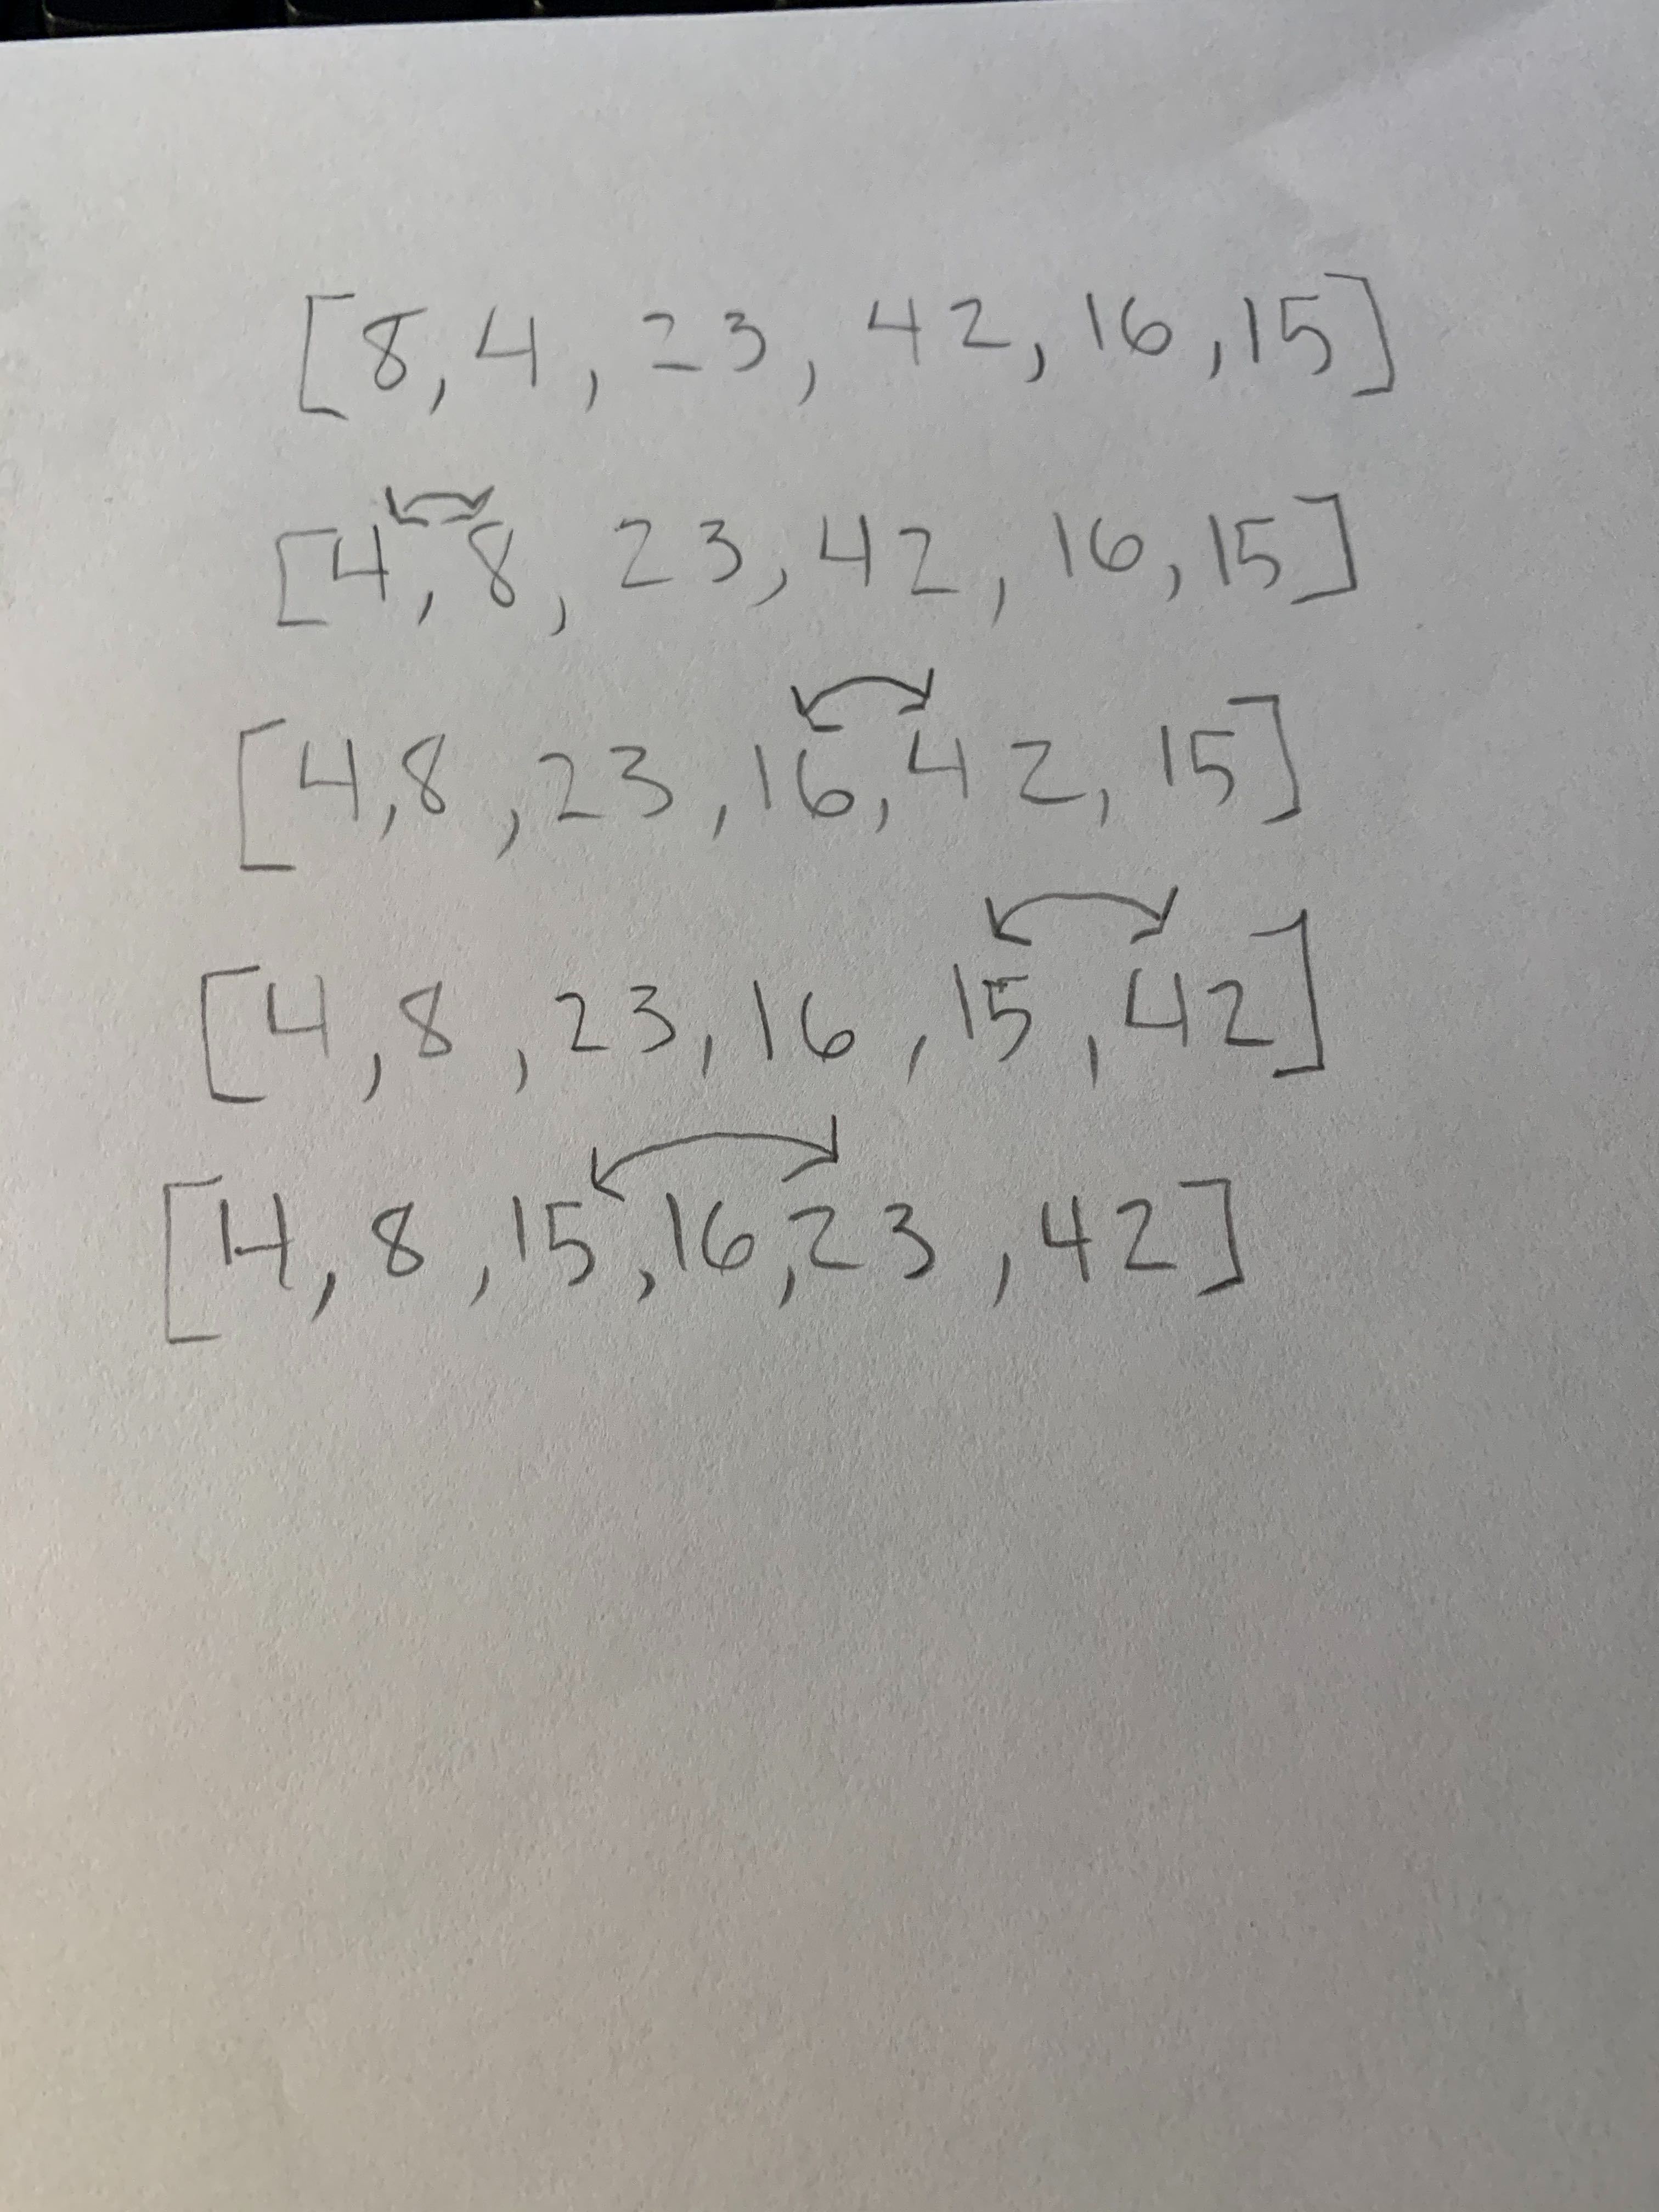 [8, 4, 23, 42, 16, 15]
[4, 8, 23, 42, 16, 15]
[4, 8, 23, 16, 42, 15]
[4, 8, 23, 16, 15, 42]
[4, 8, 15, 16, 23, 42]